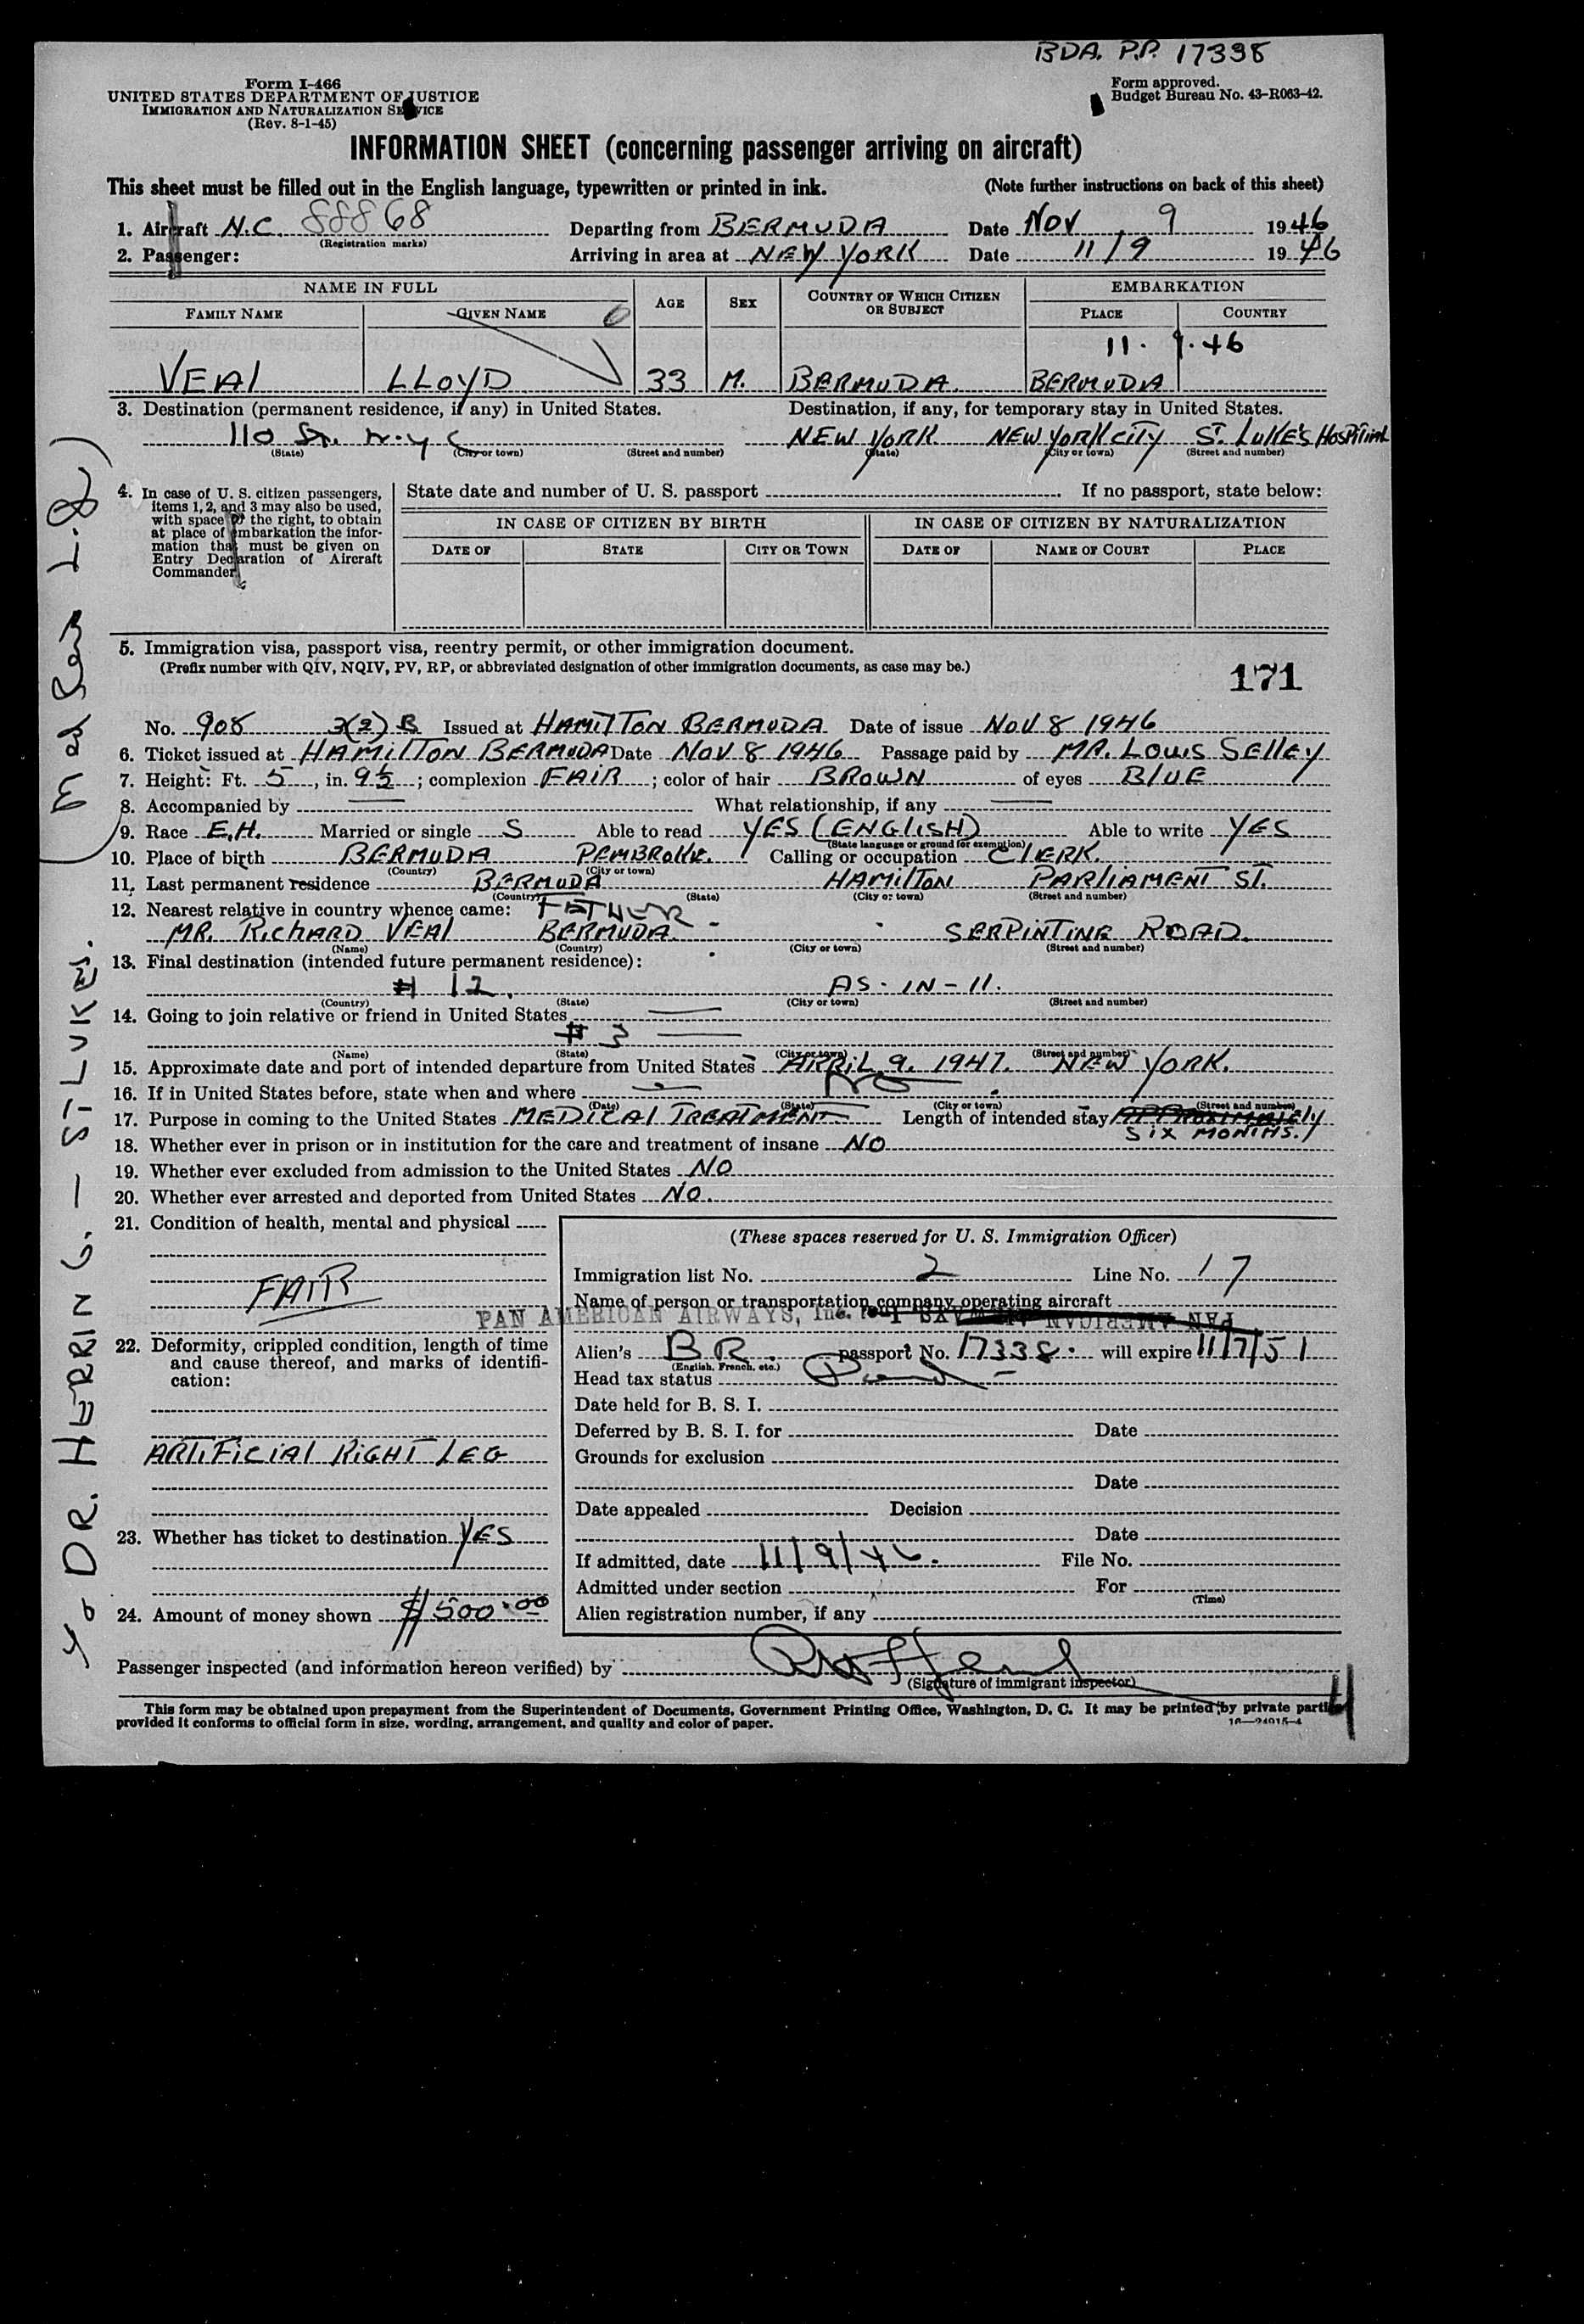 BDA. P.P. 17338
Form I-466
UNITED STATES DEPARTMENT OF JUSTICE
IMMIGRATION AND NATURALIZATION SERVICE
(Rev. 8-1-45)
Form approved.
Budget Bureau No. 43-R063-42.
INFORMATION SHEET (concerning passenger arriving on aircraft)
This sheet must be filled out in the English language, typewritten or printed in ink. (Note further instructions on back of this sheet)
1. Aircraft N.C. 88868 Departing from BERMUDA Date NOV 9 1946
(Registration marks)
2. Passenger: Arriving in area at NEW YORK Date 11/9 1946
NAME IN FULL AGE SEX COUNTRY OF WHICH CITIZEN OR SUBJECT EMBARKATION
FAMILY NAME GIVEN NAME PLACE COUNTRY
11. 9. 46
VEAL LLOYD 33 M. BERMUDA BERMUDA
3. Destination (permanent residence, if any) in United States. Destination, if any, for temporary stay in United States.
110 St. N.Y C NEW YORK NEW YORK CITY ST. LUKE'S HOSPITAL
(State) (City or town) (Street and number) (State) (City or town) (Street and number)
4. In case of U. S. citizen passengers, items 1, 2, and 3 may also be used, with space to the right, to obtain at place of embarkation the information that must be given on Entry Declaration of Aircraft Commander.
State date and number of U. S. passport If no passport, state below:
IN CASE OF CITIZEN BY BIRTH IN CASE OF CITIZEN BY NATURALIZATION
DATE OF STATE CITY OR TOWN DATE OF NAME OF COURT PLACE
5. Immigration visa, passport visa, reentry permit, or other immigration document.
(Prefix number with QIV, NQIV, PV, RP, or abbreviated designation of other immigration documents, as case may be.)
171
No. 908 3(2) B Issued at HAMILTON BERMUDA Date of issue NOV 8 1946
6. Ticket issued at HAMILTON BERMUDA Date NOV 8 1946 Passage paid by MR. LOUIS SELLEY
7. Height: Ft. 5, in. 9½; complexion FAIR; color of hair BROWN of eyes BLUE
8. Accompanied by — What relationship, if any —
9. Race E.H. Married or single S Able to read YES (ENGLISH) Able to write YES
(State language or ground for exemption)
10. Place of birth BERMUDA PEMBROKE. Calling or occupation CLERK.
(Country) (City or town)
11. Last permanent residence BERMUDA HAMILTON PARLIAMENT ST.
(Country) (State) (City or town) (Street and number)
12. Nearest relative in country whence came: FATHER
MR. RICHARD VEAL BERMUDA SERPINTINE ROAD.
(Name) (Country) (City or town) (Street and number)
13. Final destination (intended future permanent residence):
# 12. AS - IN - 11.
(Country) (State) (City or town) (Street and number)
14. Going to join relative or friend in United States —
# 3 —
(Name) (State) (City or town) (Street and number)
15. Approximate date and port of intended departure from United States APRIL 9. 1947. NEW YORK.
16. If in United States before, state when and where — NO
(Date) (State) (City or town) (Street and number)
17. Purpose in coming to the United States MEDICAL TREATMENT Length of intended stay APPROXIMATELY
SIX MONTHS.
18. Whether ever in prison or in institution for the care and treatment of insane NO
19. Whether ever excluded from admission to the United States NO
20. Whether ever arrested and deported from United States NO.
21. Condition of health, mental and physical
FAIR
22. Deformity, crippled condition, length of time and cause thereof, and marks of identification:
ARTIFICIAL RIGHT LEG
23. Whether has ticket to destination YES
24. Amount of money shown $500.00
(These spaces reserved for U. S. Immigration Officer)
Immigration list No. 2 Line No. 17
Name of person or transportation company operating aircraft
PAN AMERICAN AIRWAYS, Inc.
PAN AMERICAN AIRWAYS
Alien's BR. passport No. 17338. will expire 11/7/51
(English, French, etc.)
Head tax status
Date held for B. S. I.
Deferred by B. S. I. for Date
Grounds for exclusion
Date
Date appealed Decision
Date
If admitted, date 11/9/46. File No.
Admitted under section For
(Time)
Alien registration number, if any
Passenger inspected (and information hereon verified) by
(Signature of immigrant inspector)
This form may be obtained upon prepayment from the Superintendent of Documents, Government Printing Office, Washington, D. C. It may be printed by private parties
provided it conforms to official form in size, wording, arrangement, and quality and color of paper.
16—24915-4
DR. HERRING. — ST LUKES.